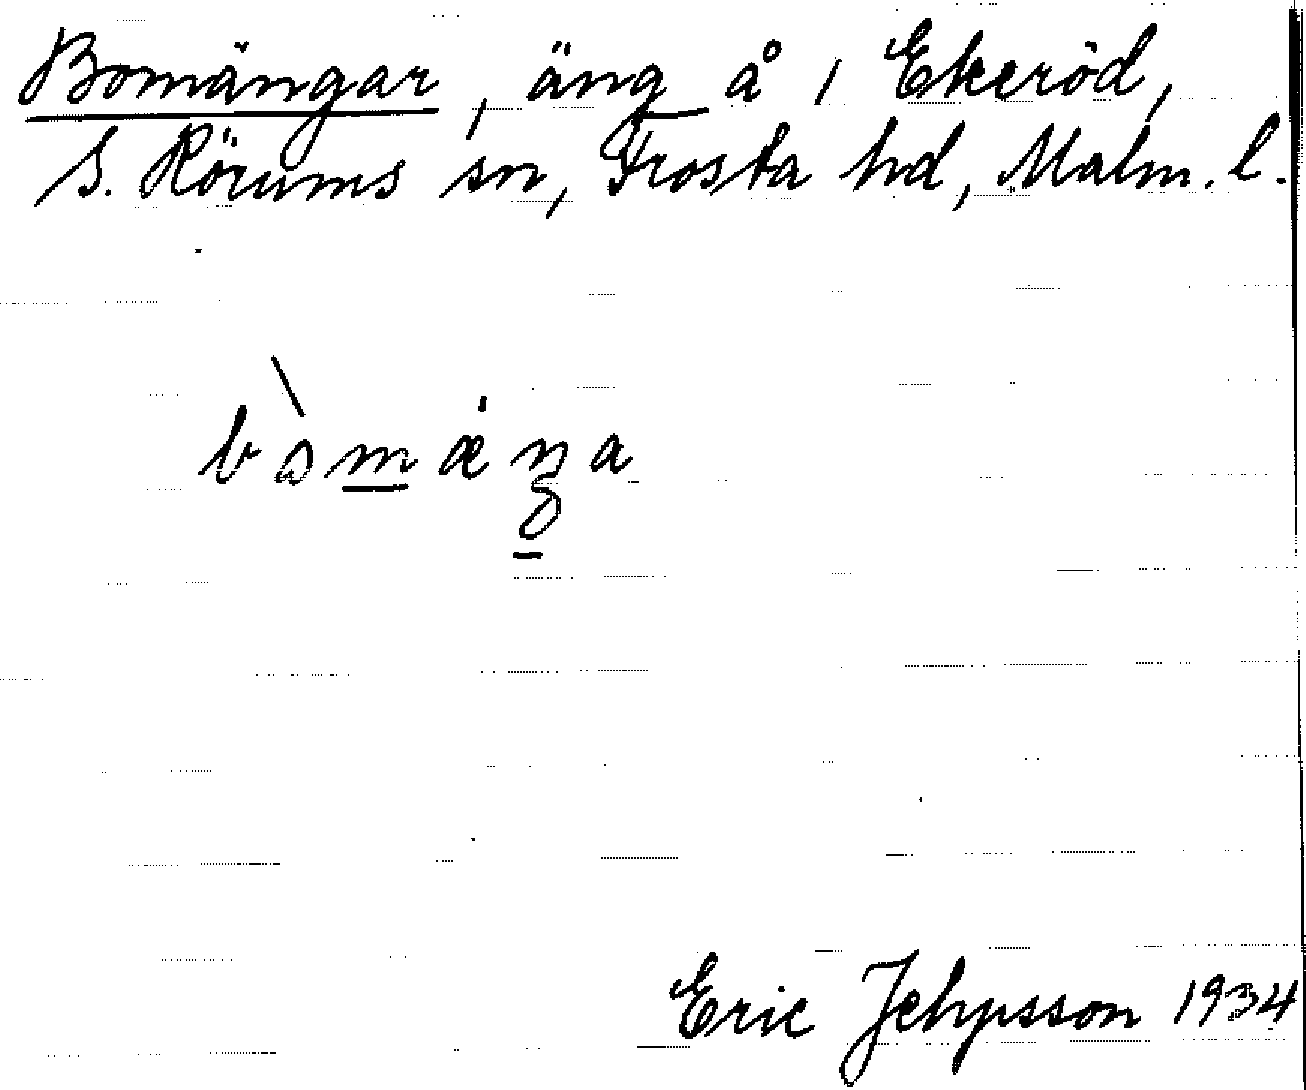 Bomängar, äng å 1 Ekeröd,
S. Rörums sn, Frosta hd, Malm. l.
Eric Jehpsson 1934